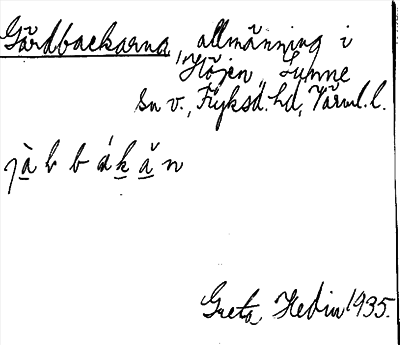 Gärdbackarna, allmänning i
Höjen, Sunne
sn v., Fryksd. hd, Värml. l.
jàbbákǎn
Greta Hedin 1935.